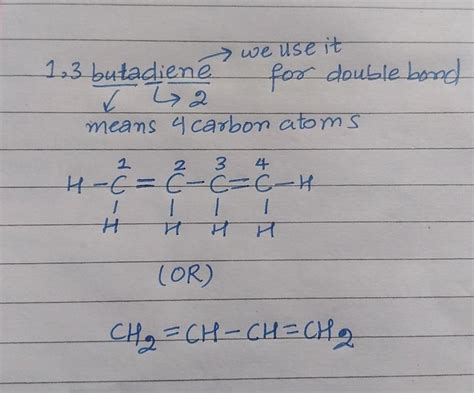 we use it
1,3 butadiene for double bond
2
means 4 carbon atoms
1 2 3 4
H-C=C-C=C-H
H H H H
(OR)
CH₂=CH-CH=CH₂